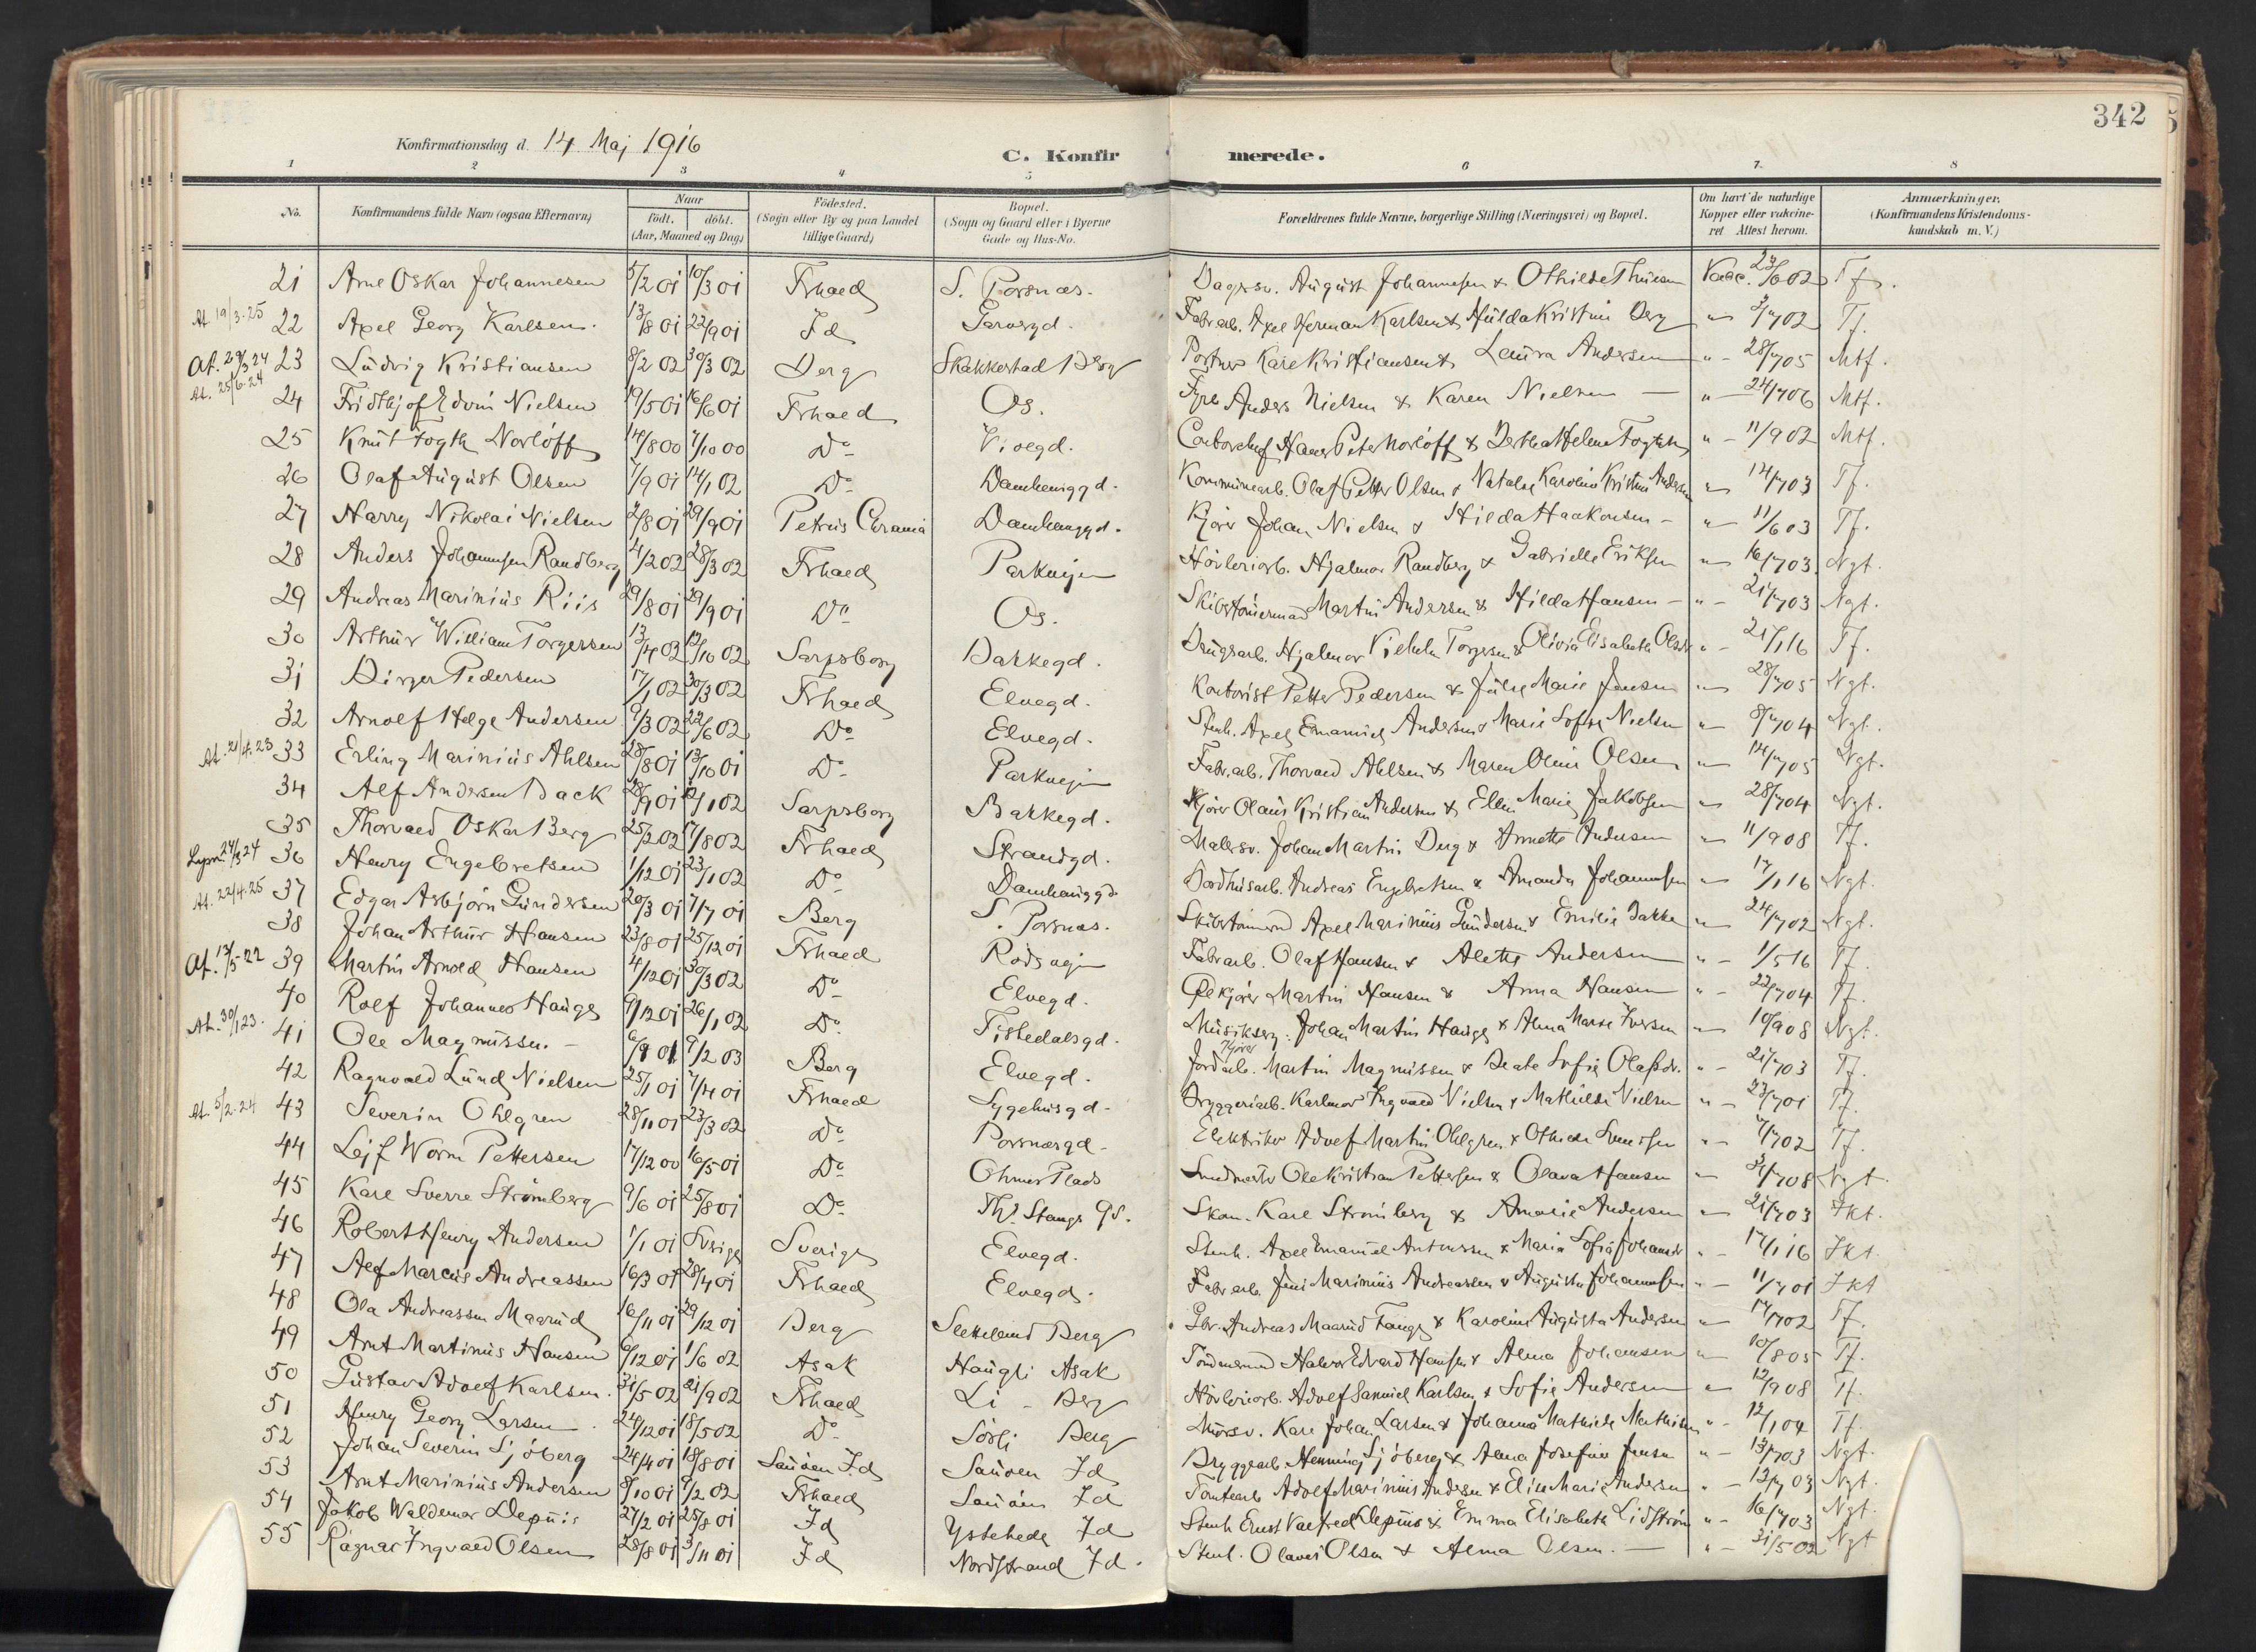 342
Konfirmationsdag d. 14 Maj 1916
C. Konfir merede.
1 2 3 4 5 6 7. 8
No. Konfirmandens fulde Navn (ogsaa Efternavn) Naar födt. döbt. (Aar, Maaned og Dag.) Födested. (Sogn eller By og paa Landet tillige Gaard.) Bopæl. (Sogn og Gaard eller i Byerne Gade og Hus-No. Forældrenes fulde Navne, borgerlige Stilling (Næringsvei) og Bopæl. Om havt de naturlige Kopper eller vakcineret Attest herom. Anmærkninger. (Konfirmandens Kristendomskundskab m. V.)
21 Arne Oskar Johannesen 5/2 01 10/3 01 Frhald S. Porsnæs. Dagsv. August Johannesen & Othilde Vacc. 23/6 02 Tf.
At 19/3-25 22 Axel Georg Karlsen. 13/8 01 22/9 01 Id Garvergd. Fabrarb. Axel Herman Karlsen & Hulda Kristine Berg " 02 Tf.
At. 29/3 24 23 Ludvig Kristiansen 8/2 02 30/3 02 Berg Skakkestad Berg Portner Karl Kristiansen & Laura Andersen " - 28/7 05 Mtf.
At. 25/6-24 24 Fridthjof Edvin Nielsen 19/5 01 16/6 01 Frhald Os. Fyrb. Anders Nielsen & Karen Nielsen — " - 24/7 06 Mtf.
25 Knut Fogth Norløff 14/8 00 7/10 00 Do Violgd. Hans Peter Norløff & Bertha Helene Fogth " - 11/9 02 Mtf.
26 Olaf August Olsen 7/9 01 14/1 02 Do Damhauggd. Kommunearb. Olaf Petter Olsen & Natalie Karoline Kristine Andersen " 14/7 03 Tf.
27 Harry Nikolai Nielsen 2/8 01 29/9 01 Petrus Chrania Damhauggd. Kjører Johan Nielsen & Hilda Haakonsen - " 11/6 03 Tf.
28 Anders Johannsen Randberg 4/2 02 28/3 02 Frhald Parkvejen Høvleriarb. Hjalmar Randberg & Gabrielle Eriksen " 16/7 03. Ngt.
29 Andreas Marinius Riis 29/8 01 29/9 01 Do Os. Skibstømermand Martin Andersen & Hilda Hansen - " - 21/7 03 Ngt.
30 Arthur William Torgersen 13/4 02 12/10 02 Sarpsborg Bakkegd. Brugsarb. Hjalmar Vilhelm Torgersen & Olivia Elisabeth Olsen " - 21/1 16 Tf.
31 Birger Pedersen 17/1 02 30/3 02 Frhald Elvegd. Kontorist Petter Pedersen & Julie Marie Jensen " 28/7 05 Ngt.
32 Arnolf Helge Andersen 9/3 02 22/6 02 Do Elvegd. Stenh. Axel Emanuel Andersen & Marie Sofie Nielsen " 8/7 04 Ngt.
At. 21/4.23 33 Erling Marinius Ahlsen 28/8 01 13/10 01 Do Parkvejen Fabr.arb. Thorvald Ahlsen & Maren Oline Olsen " 14/7 05 Ngt.
34 Alf Andersen Back 28/9 01 12/1 02 Sarpsborg Bakkegd. Kjører Olaus Kristian Andersen & Ellen Marie Jakobsen " 28/7 04 Ngt.
35 Thorvald Oskar Berg 25/2 02 17/8 02 Frhald Strandgd. Malersv. Johan Martin Berg & Annette Andersen " 11/9 08 Tf.
24/3 24 36 Henry Engebretsen 1/12 01 23/1 02 Do Damhauggd. Bordhusarb. Andreas Engebretsen & Amanda Johannesen " 17/1 16 Ngt.
At. 22/4.25 37 Edgar Asbjørn Gundersen 20/3 01 7/7 01 Berg S. Porsnæs. Skibstømmermd Axel Marinius Gundersen & Emilie Bakke " 24/7 02 Ngt.
38 Johan Arthur Hansen 23/8 01 25/12 01 Frhald Rødsvejen Fabrarb. Olaf Hansen & Alette Andersen " - 1/5 16 Tf.
At. 13/5-22 39 Martin Arnold Hansen 4/12 01 30/3 02 Do Elvegd. Ølkjører Martin Hansen & Anna Hansen " - 22/7 04 Tf.
40 Rolf Johannes Hauge 9/12 01 26/1 02 Do Tistedalsgd. Musikserg. Johan Martin Hauge & Alma Marie Iversen " 10/9 08 Ngt.
At. 30/1 23. 41 Ole Magnussen. - 6/9 01 9/2 03 Berg Elvegd. Jordarb. Kjører Martin Magnussen & Beate Sofie Olafsdr. " - 21/7 03 Tf.
42 Ragnvald Lund Nielsen 25/1 01 7/4 01 Frhald Sygehusgd. Bryggeriarb. Karlmar Ingvald Nielsen & Mathilde Nielsen " - 23/7 01 Tf.
At. 5/2-24 43 Severin Ohlgren 28/11 01 23/3 02 Do Porsnæsgd. Elektriker Adolf Martin Ohlgren & Othilde Svensen " - 7/7 02 Tf.
44 Lejf Worm Pettersen 17/12 00 16/5 01 Do Ohmes Plads Ole Kristian Pettersen & Olava Hansen " 08 Ngt.
45 Karl Sverre Strømberg 9/6 01 25/8 01 Do Ths Stangs gd. Skom. Karl Strømberg & Amalie Andersen " 21/7 03 Ikt.
46 Robert Henry Andersen 1/1 01 Sverige Sverige Elvegd. Stenh. Axel Emanuel Antonsen & Maria Sofia Johansdr " - 17/1 16 Ikt.
47 Alf Marcus Andreassen 16/3 01 28/4 01 Frhald Elvegd. Fabrarb. Jens Marinius Andreassen & Augusta Johannesen " - 11/7 01 Ikt
48 Ola Andreassen Maarud 16/11 01 29/12 01 Berg Berg Gbr. Andreas Maarud Fange & Karoline Augusta Andersen " 17/7 02 Tf.
49 Arnt Martinius Hansen 6/12 01 1/6 02 Asak Haugli Asak Tømmermand Halvor Edvard Hansen & Alma Johansen " 10/8 05 Tf.
50 Gustav Adolf Karlsen. 31/5 02 21/9 02 Frhald Li - Berg Høvleriarb. Adolf Samuel Karlsen & Sofie Andersen " 12/9 08 Tf.
51 Henry Georg Larsen 24/12 01 18/5 02 Do Sørli Berg Mursv. Karl Johan Larsen & Johanna Mathilde Mathisen " - 12/1 04 Tf.
52 Johan Severin Sjøberg 24/4 01 18/8 01 Sauøen Id Sauøen Id Bryggearb Henning Sjøberg & Alma Josefine Jensen " - 13/7 03 Ngt.
53 Arnt Marinius Andersen 8/10 01 9/2 02 Frhald Sauøen Id Tomtearb Adolf Marinius Andersen & Elise Marie Andersen " - 12/7 03 Ngt.
54 Jakob Waldemar Depuis 27/2 01 25/8 01 Id Ystehede Id Stenh Ernst Valfred Depuis & Emma Elisabeth Lidström " - 16/7 03 Ngt.
55 Ragnar Ingvald Olsen 28/8 01 3/11 01 Id Nordstrand Id. Stenh. Olaves Olsen & Alma Olsen. — " - 31/5 02 Ngt